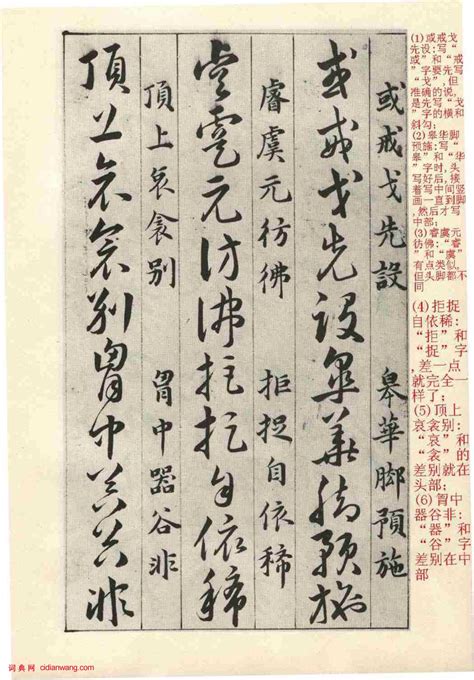 (1)或戒戈
先设:写“
或”和“戒
”字要先写
“戈”,但
准确的说,
是先写“戈
”字的横和
斜勾;
(2)皋华脚
预施:写“
皋”和“华
”字时,头
写好后,接
着写中间竖
画一直到脚
,然后才写
中部;
(3)睿虞元
彷佛:“睿
”和“虞”
有点类似,
但头脚都不
同
(4)拒捉
自依稀:
“拒”和
“捉”字
,差一点
就完全一
样了;
(5)顶上
哀衾别:
“哀”和
“衾”的
差别就在
头部;
(6)胃中
器谷非:
“器”和
“谷”字
差别在中
部
或戒戈先設 皋華脚預施
或戒戈先設皋華脚預施
睿虞元彷彿 拒捉自依稀
睿虞元彷彿拒捉自依稀
頂上哀衾别 胃中器谷非
頂上哀衾别胃中器谷非
词典网 cidianwang.com